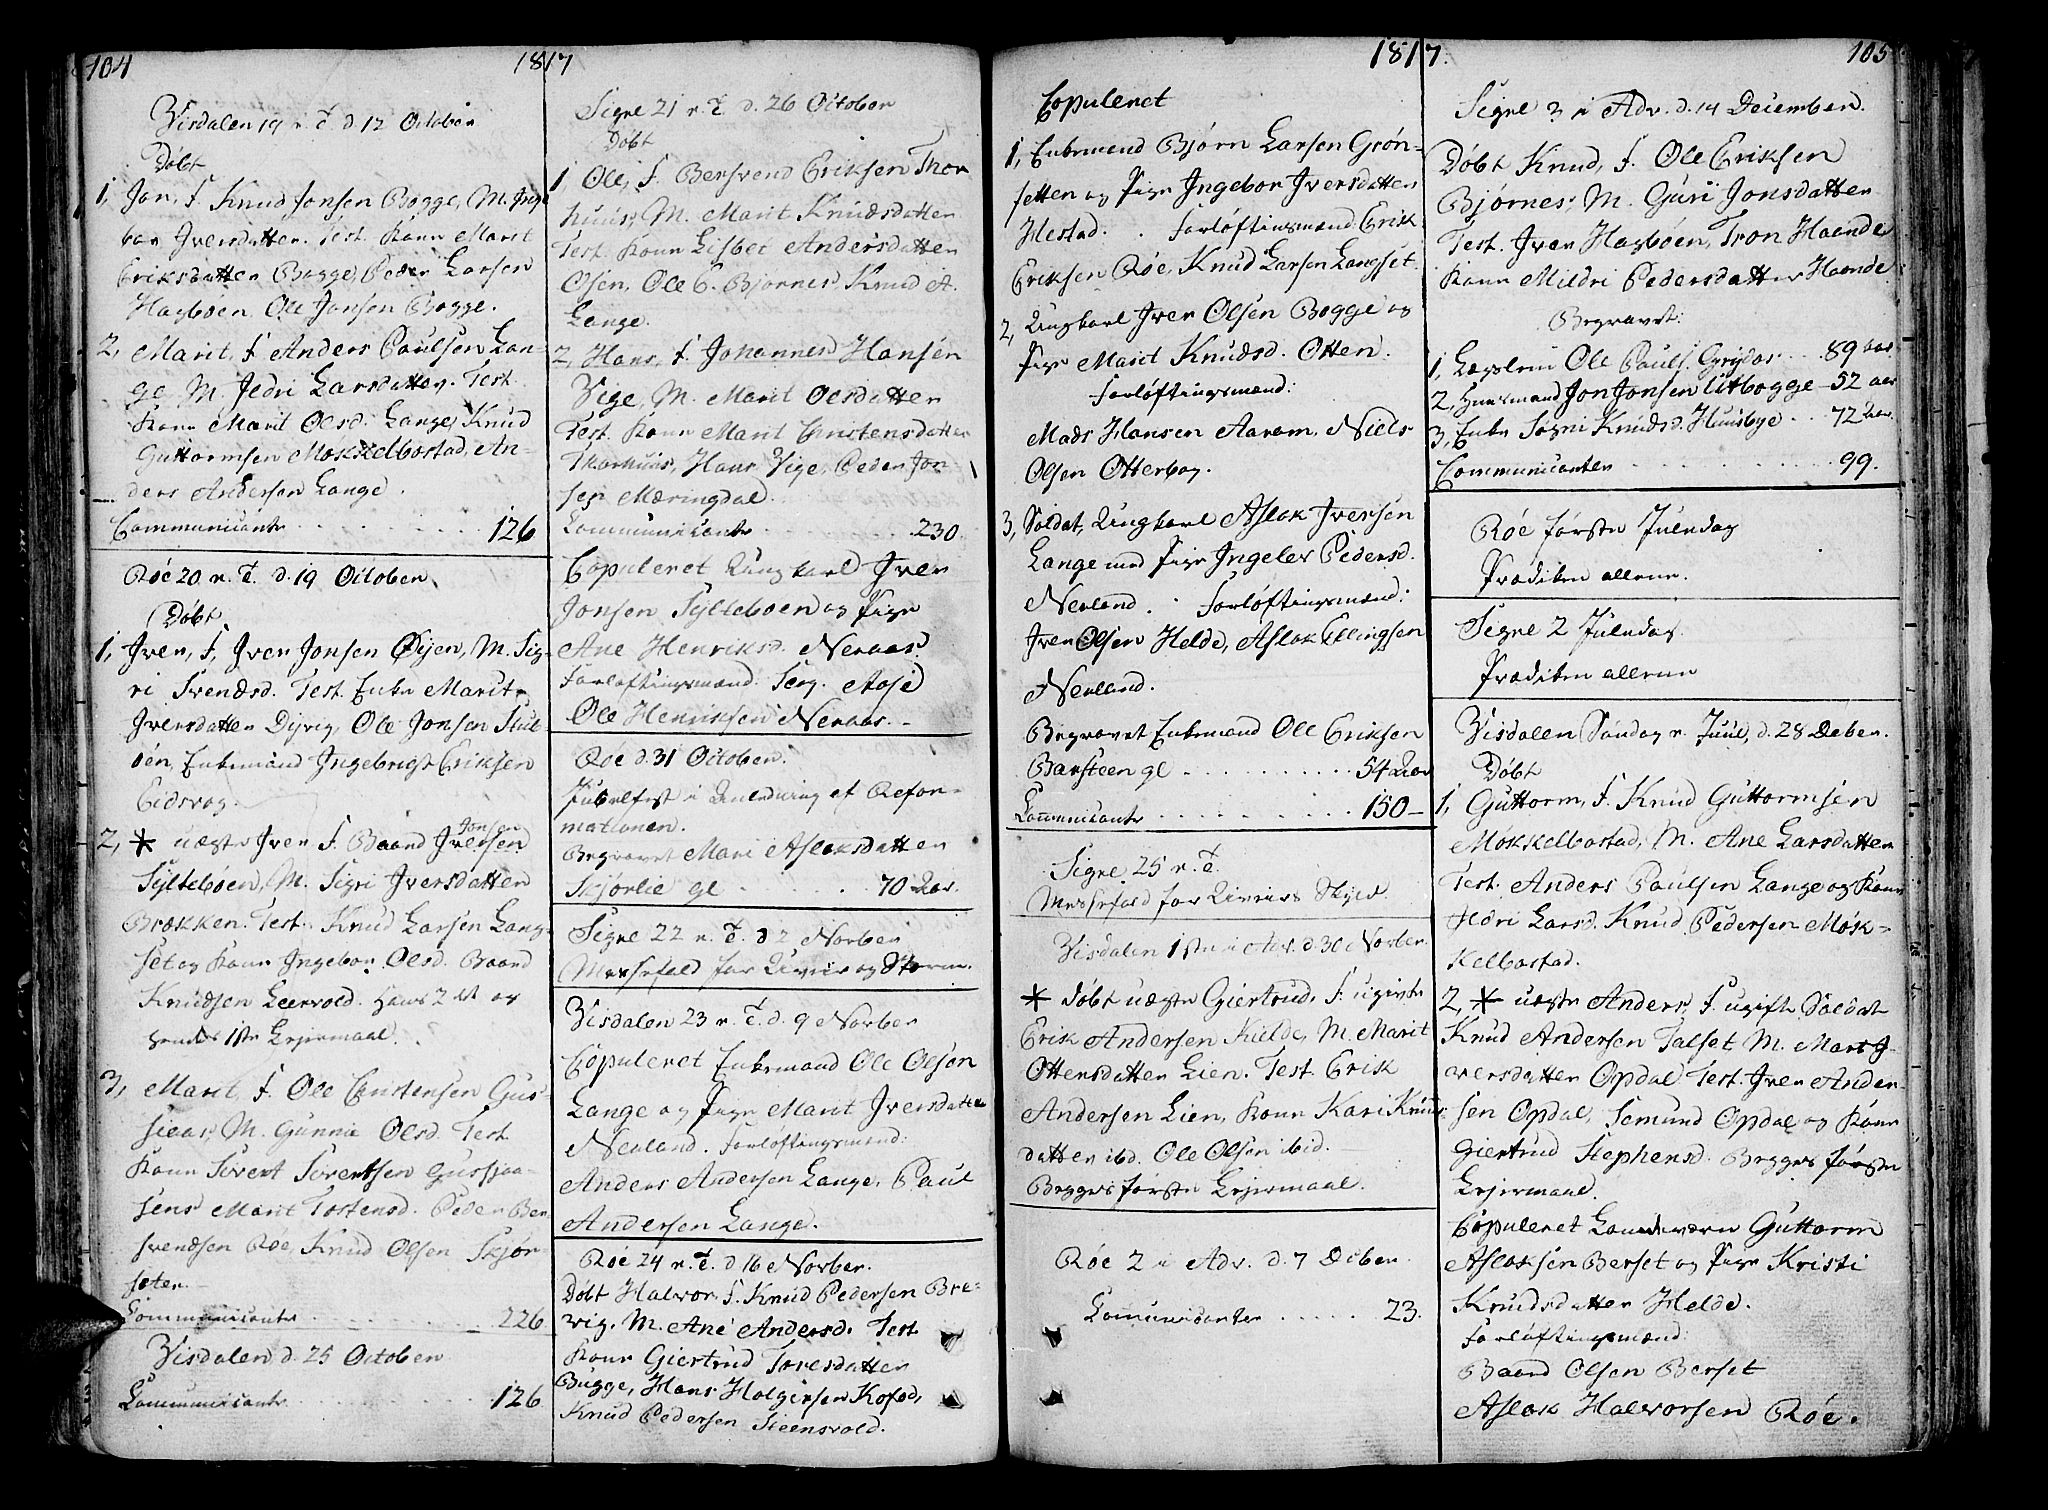 104
1817
Visdalen 19 n. T. d. 12 October
Døbt
1, Jon, F. Knud Jonsen Bogge, M. Inge
bor Iversdatter. Test. Kone Marit
Eriksdatter Bogge, Peder Larsen
Hagbøen, Ole Jonsen Bogge.
2, Marit, F. Anders Paulsen Lan-
ge, M. Jedri Larsdatter. Test.
Kone Marit Olsd. Lange, Knud
Guttormsen Møkkelbostad, An-
ders Andersen Lange.
Communicanter 126
Røe 20 n. T. d. 19 October
Døbt
1, Iver, F. Iver Jonsen Øijen, M. Sig-
ri Svendsd. Test. Enke Marit
Iversdatter Dyrvig, Ole Jonsen Stub-
øen, Enkemand Ingebrigt Eriksen
Eidsvog.
2, * uægte Iver F. Baard Jonsen Iversen
Sylteboen, M. Sigri Iversdatter
Brækken. Test. Knud Larsen Lang-
set og Kone Ingebor Olsd. Baard
Knudsen Leervold. Hans 2det og
hendes 1ste Lejermaal.
3, Marit, F. Ole Christensen Gus-
sieas, M. Gunnie Olsd. Test
Kone Sivert Sivertsen Gussiaa-
sens Marit Tostensd. Peder Ber-
svendsen Røe, Knud Olsen Skjør-
seter.
Communicanter 226
Visdalen d. 25 October
Communicanter 126
Signe 21 n. T. d. 26 October
Døbt
1, Ole, F. Bersvend Eriksen Thor
huus, M. Marit Knudsdatter
Test. Kone Lisbet Andersdatter
Osen, Ole E. Bjørnes, Knud A.
Lange.
2, Hans, F. Johannes Hansen
Vige, M. Marit Olsdatter
Test. Kone Marit Christensdatter
Thorhuus, Hans Vige, Peder Jon-
sen Mæringdal.
Communicanter 230
Copuleret Ungkarl Iver
Jonsen Sylteboen og Pige
Ane Henriksd. Neraas.
Forloftingsmænd: Serg. Aase
Ole Henriksen Neraas.
Røe d. 31 October.
Jubelfest i Anledning af Refor-
mationen.
Begravet Mari Aslaksdatter
Skjørlie gl. 70 Aar.
Signe 22 n. T. d. 2 Novber
Messefald for Uveir og Storm.
Visdalen 23 n. T. d. 9 Novber
Copuleret Enkemand Ole Olsen
Lange og Pige Marit Iversdatter
Nerland. Forloftingsmænd:
Anders Andersen Lange, Paul
Andersen Lange.
Røe 24 n. T. d. 16 Novber.
Døbt Halvor F. Knud Pedersen Bre-
vig. M. Ane Andersd. Test
Kone Giertrud Toresdatter
Bugge, Hans Holgersen Kofod,
Knud Pedersen Steensvold.
1817.
105
Copuleret
1, Enkemand Bjørn Larsen Grøn-
setten og Pige Ingebor Iversdatter
Hestad. Forløftingsmænd Erik
Eriksen Røe, Knud Larsen Langset.
2, Ungkarl Iver Olsen Bogge og
Pige Marit Knudsd. Otten.
Forløftingsmænd:
Mads Hansen Aarem, Niels
Olsen Otterbog.
3, Soldat, Ungkarl Aslak Iversen
Lange med Pige Ingelev Pedersd.
Nerland. Forløftingsmænd:
Iver Olsen Helde, Aslak Ellingsen
Nerland.
Begravet Enkemand Ole Eriksen
Barsteen gl. 54 Aar
Communicanter 150
Signe 25 n. T.
Messefald for Uveirs Skyld.
Visdalen 1ste i Adv. d. 30 Novber.
* Døbt uægte Giertrud, F. ugivte
Erik Andersen Kielde, M. Marit
Ottersdatter Lien. Test. Erik
Andersen Lien, Kone Kari Knuds
datter ibd. Ole Olsen ibid.
Begges første Lejermaal.
Røe 2 i Adv. d. 7 Deceber.
Communicanter 23.
Signe 3 i Adv. d. 14 December.
Døbt Knud, F. Ole Eriksen
Bjørnes, M. Guri Jonsdatter
Test. Iver Hagbøen, Tron Haende
Kone Mildri Pedersdatter Haende
Begravet:
1, Lægslem Ole Pauls. Grydas 89 Aar
2, Huusmand Jon Jonsen Utbogge 52 aar
3, Enke Sigri Knudsd. Huusbye 72 Aar.
Communicanter 99.
Røe første Juledag
Prædiken allene.
Signe 2 Juledag.
Prædiken allene
Visdalen Søndag n. Juul, d. 28 Deber.
Døbt
1, Guttorm, F. Knud Guttormsen
Møkkelbostad, M. Ane Larsdatter
Test. Anders Paulsen Lange og Kone
Jedri Larsd. Knud Pedersen Møk-
kelbostad.
2, * uægte Anders, F. ugift Soldat
Knud Andersen Talset M. Marit I-
versdatter Opdal Test. Iver Ander-
sen Opdal, Semund Opdal og Kone
Giertrud Stephensd. Begges første
Lejermaal.
Copuleret Landeværn Guttorm
Aslaksen Berset og Pige Kristi
Knudsdatter Helde.
Forløftingsmænd:
Baard Olsen Berset
Aslak Halvorsen Røe.